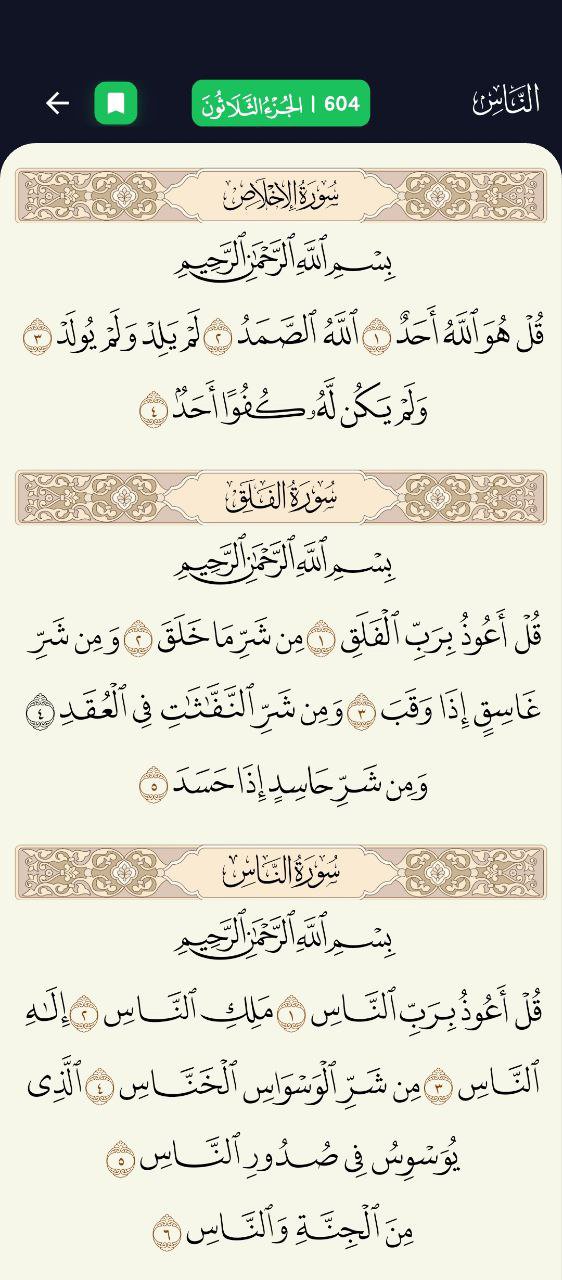 النَّاسِ
604 | الجُزْءُ الثَّلَاثُونَ
سُورَةُ الإِخْلَاصِ
بِسْمِ ٱللَّهِ ٱلرَّحْمَٰنِ ٱلرَّحِيمِ
قُلْ هُوَ ٱللَّهُ أَحَدٌ ١ ٱللَّهُ ٱلصَّمَدُ ٢ لَمْ يَلِدْ وَلَمْ يُولَدْ ٣
وَلَمْ يَكُن لَّهُۥ كُفُوًا أَحَدٌۢ ٤
سُورَةُ الفَلَقِ
بِسْمِ ٱللَّهِ ٱلرَّحْمَٰنِ ٱلرَّحِيمِ
قُلْ أَعُوذُ بِرَبِّ ٱلْفَلَقِ ١ مِن شَرِّ مَا خَلَقَ ٢ وَمِن شَرِّ
غَاسِقٍ إِذَا وَقَبَ ٣ وَمِن شَرِّ ٱلنَّفَّٰثَٰتِ فِى ٱلْعُقَدِ ٤
وَمِن شَرِّ حَاسِدٍ إِذَا حَسَدَ ٥
سُورَةُ النَّاسِ
بِسْمِ ٱللَّهِ ٱلرَّحْمَٰنِ ٱلرَّحِيمِ
قُلْ أَعُوذُ بِرَبِّ ٱلنَّاسِ ١ مَلِكِ ٱلنَّاسِ ٢ إِلَٰهِ
ٱلنَّاسِ ٣ مِن شَرِّ ٱلْوَسْوَاسِ ٱلْخَنَّاسِ ٤ ٱلَّذِى
يُوَسْوِسُ فِى صُدُورِ ٱلنَّاسِ ٥
مِنَ ٱلْجِنَّةِ وَٱلنَّاسِ ٦